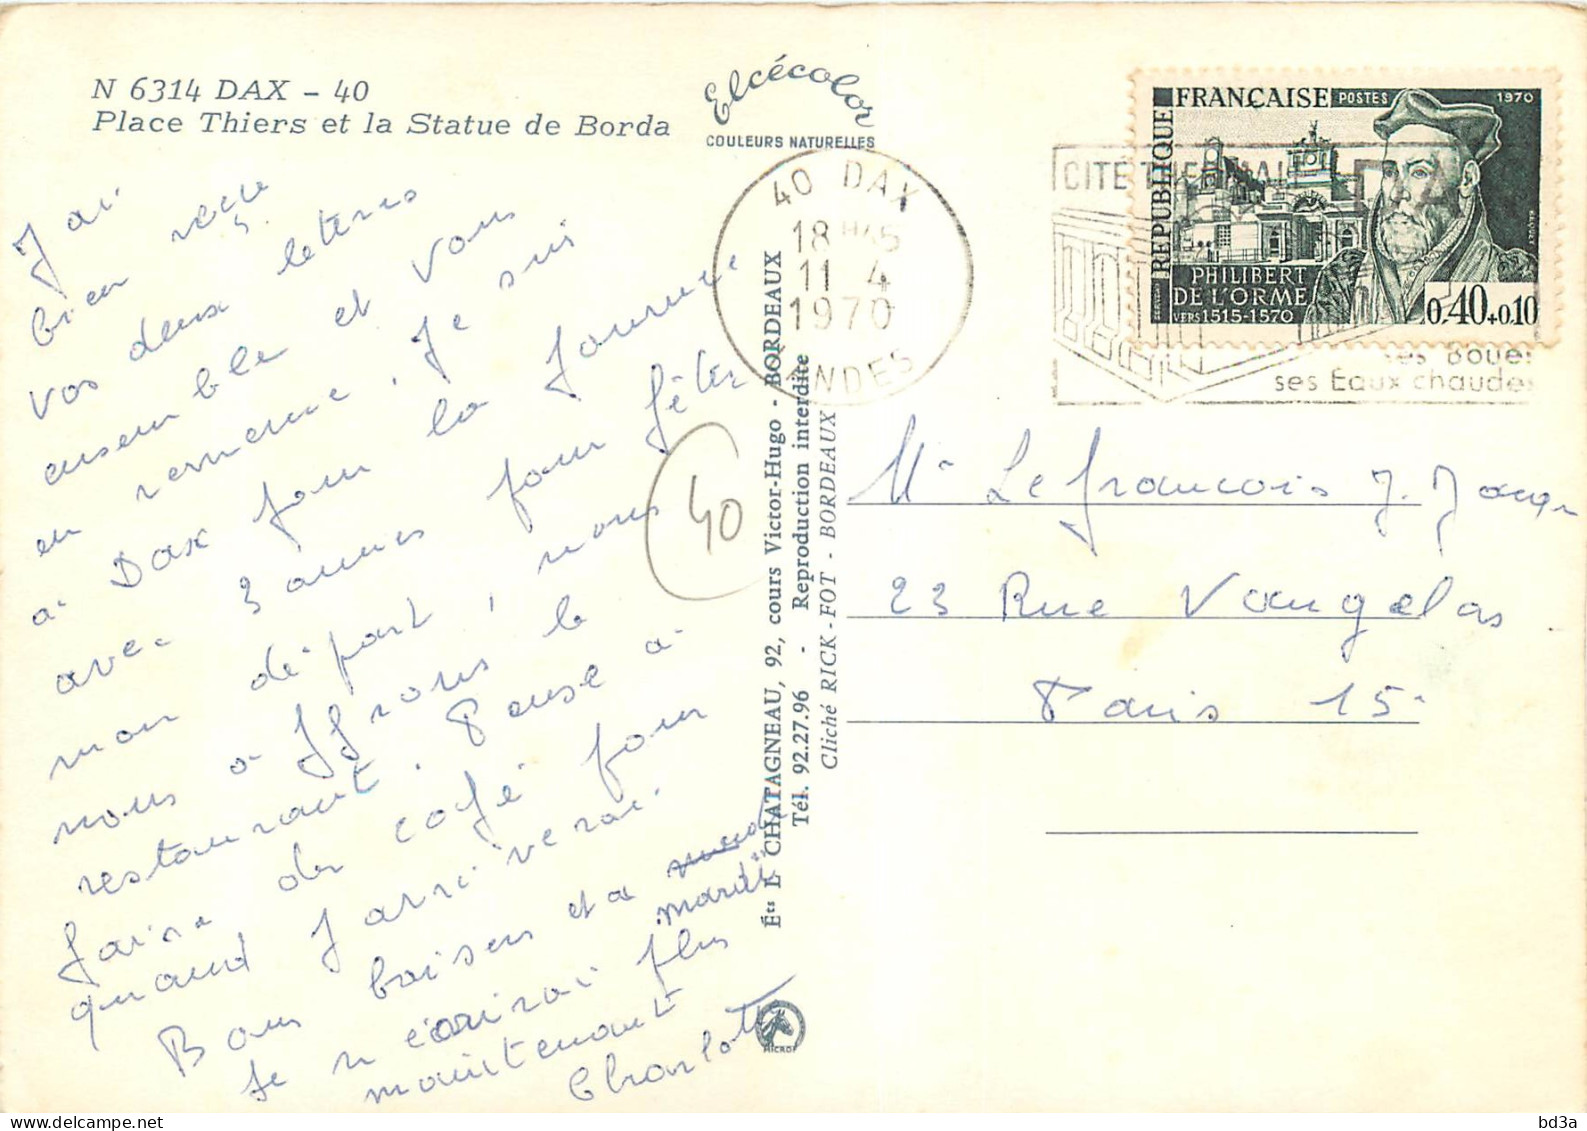 N 6314 DAX - 40
Place Thiers et la Statue de Borda
Elcécolor
COULEURS NATURELLES
J'ai
bien reçu
vos deux lettres
ensemble et vous
en remercie, je suis
à Dax pour la journée
avec 3 amies pour fêter
mon départ, nous
nous offrons le
restaurant. Pense à
faire du café pour
quand j'arriverai.
Bons baisers et a
mardi
Je n'écrirai plus
maintenant
Charlotte
40
Éts L. CHATAGNEAU, 92, cours Victor-Hugo - BORDEAUX
Tél. 92.27.96 - Reproduction interdite
Cliché RICK-FOT - BORDEAUX
40 DAX
18 H45
11 4
1970
LANDES
CITE THERMALE
ses Boues
ses Eaux chaudes
REPUBLIQUE FRANÇAISE
POSTES 1970
PHILIBERT
DE L'ORME
VERS 1515-1570
0,40+0,10
Mr Lefrancois J.
23 Rue Vaugelas
Paris 15e
bd3a